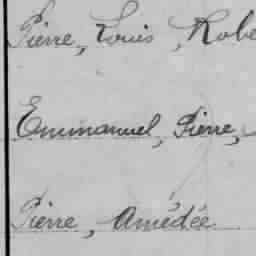 Pierre, Louis, Robe
Emmanuel, Pierre,
Pierre, Amédée